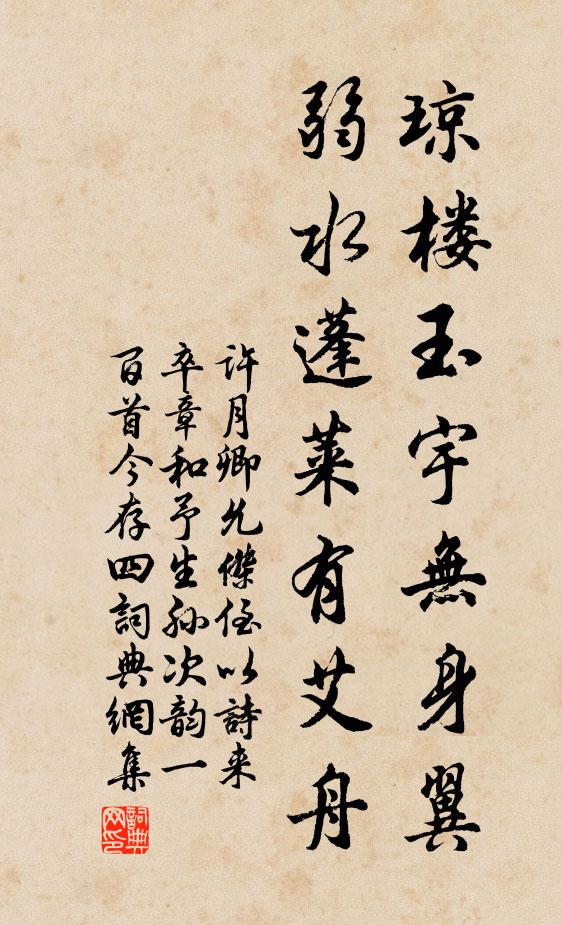 琼楼玉宇無身翼
弱水蓬莱有艾舟
許月卿允傑侄以詩来
卒章和予生孙次韵一
百首今存四詞典網集
詞典网印